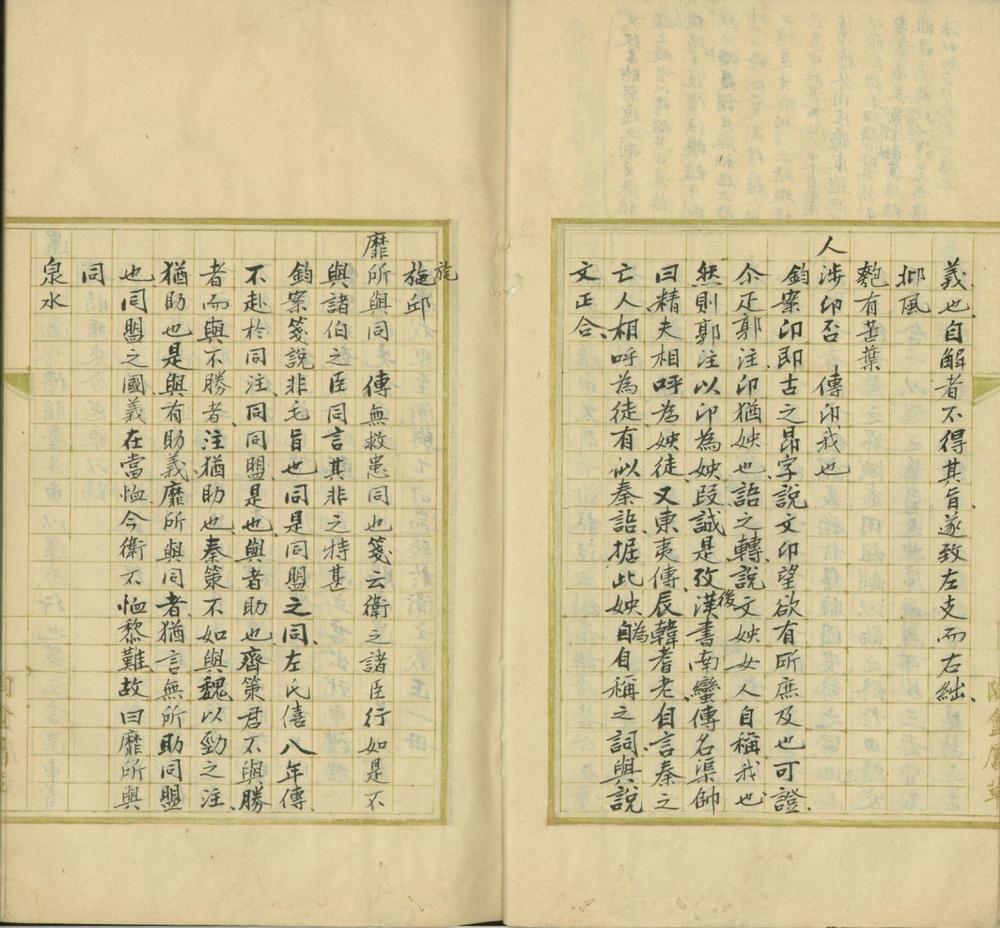 義也自解者不得其旨遂致左支而右絀
邶風
匏有苦葉
人涉卬否　傳卬我也
鈞案卬即古之昂字說文卬望欲有所庶及也可證
尒疋郭注卬猶姎也語之轉說文姎女人自稱我也
然則郭注以卬為姎段誠是攷漢後書南蠻傳名渠帥
曰精夫相呼為姎徒又東夷傳辰韓耆老自言秦之
亡人相呼為徒有似秦語据此姎自為自稱之詞與說
文正合
旄
旄邱
靡所與同　傳無救患同也箋云衛之諸臣行如是不
與諸伯之臣同言其非之特甚
鈞案箋說非毛旨也同是同盟之同左氏僖八年傳
不赴於同注同同盟是也與者助也齊策君不與勝
者而與不勝者注猶助也秦策不如與魏以勁之注
猶助也是與有助義靡所與同者猶言無所助同盟
也同盟之國義在當恤今衛不恤黎難故曰靡所與
同
泉水